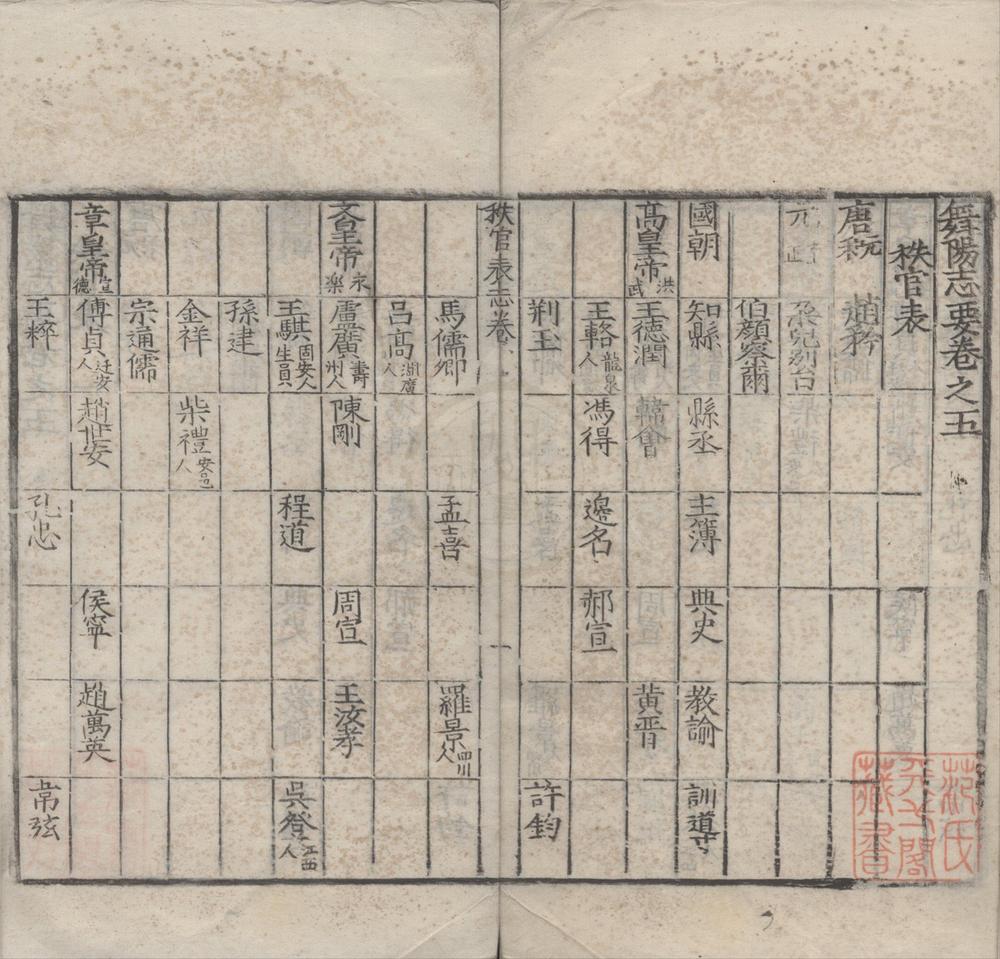 舞陽志要卷之五
秩官表
唐 稅 趙矜
元
伯顏察爾
國朝 知縣 縣丞 主簿 典史 教諭 訓導
高皇帝 洪武 王德潤 韓會 黃晋
王輅 龍泉人 馮得 邉名 郝宣
荆玉 許鈞
秩官表志卷 一
馬儒卿 孟喜 羅景 四川人
呂高 湖廣人
文皇帝 永樂 盧廣 壽州人 陳剛 周宣 王汝孝
王騏 固安人生員 程道 吳登 江西人
孫建
金祥 柴禮 安邑人
宗通儒
章皇帝 宣德 傅貞 迁安人 趙世安 侯寧 趙萬英
王粹 孔忠 常弦
范氏天一閣藏書